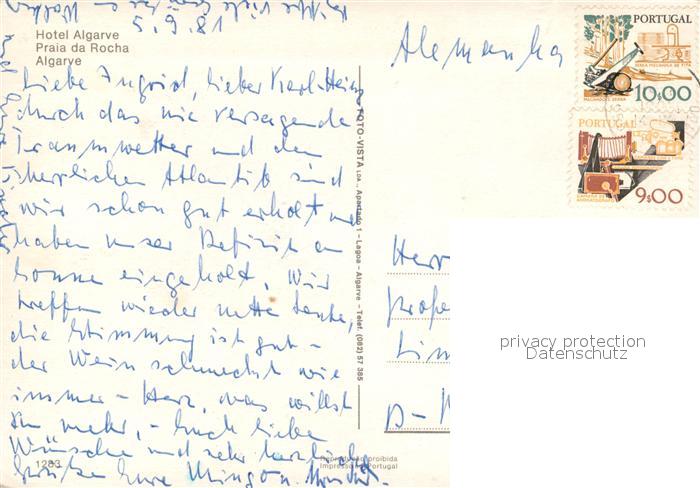 5.9.81
Hotel Algarve
Praia da Rocha
Algarve
Liebe Ingrid, lieber Karl-Heinz
durch das nie versagende
Traumwetter und den
herrlichen Atlantik sind
wir schon gut erholt und
haben unser Defizit an
Sonne eingeholt. Wir
treffen wieder nette Leute,
die Stimmung ist gut -
der Wein schmeckt wie
immer - Herz, was willst
Du mehr, - Euch liebe
Wünsche und sehr herzliche
Grüße Eure
1283
FOTO-VISTA LDA., Apartado 1 - Lagoa - Algarve - Telef. (082) 57 385
Reprodução proibida
Impresso em Portugal
Alemanha
PORTUGAL
10$00
PORTUGAL
9$00
Herr
D-
privacy protection
Datenschutz